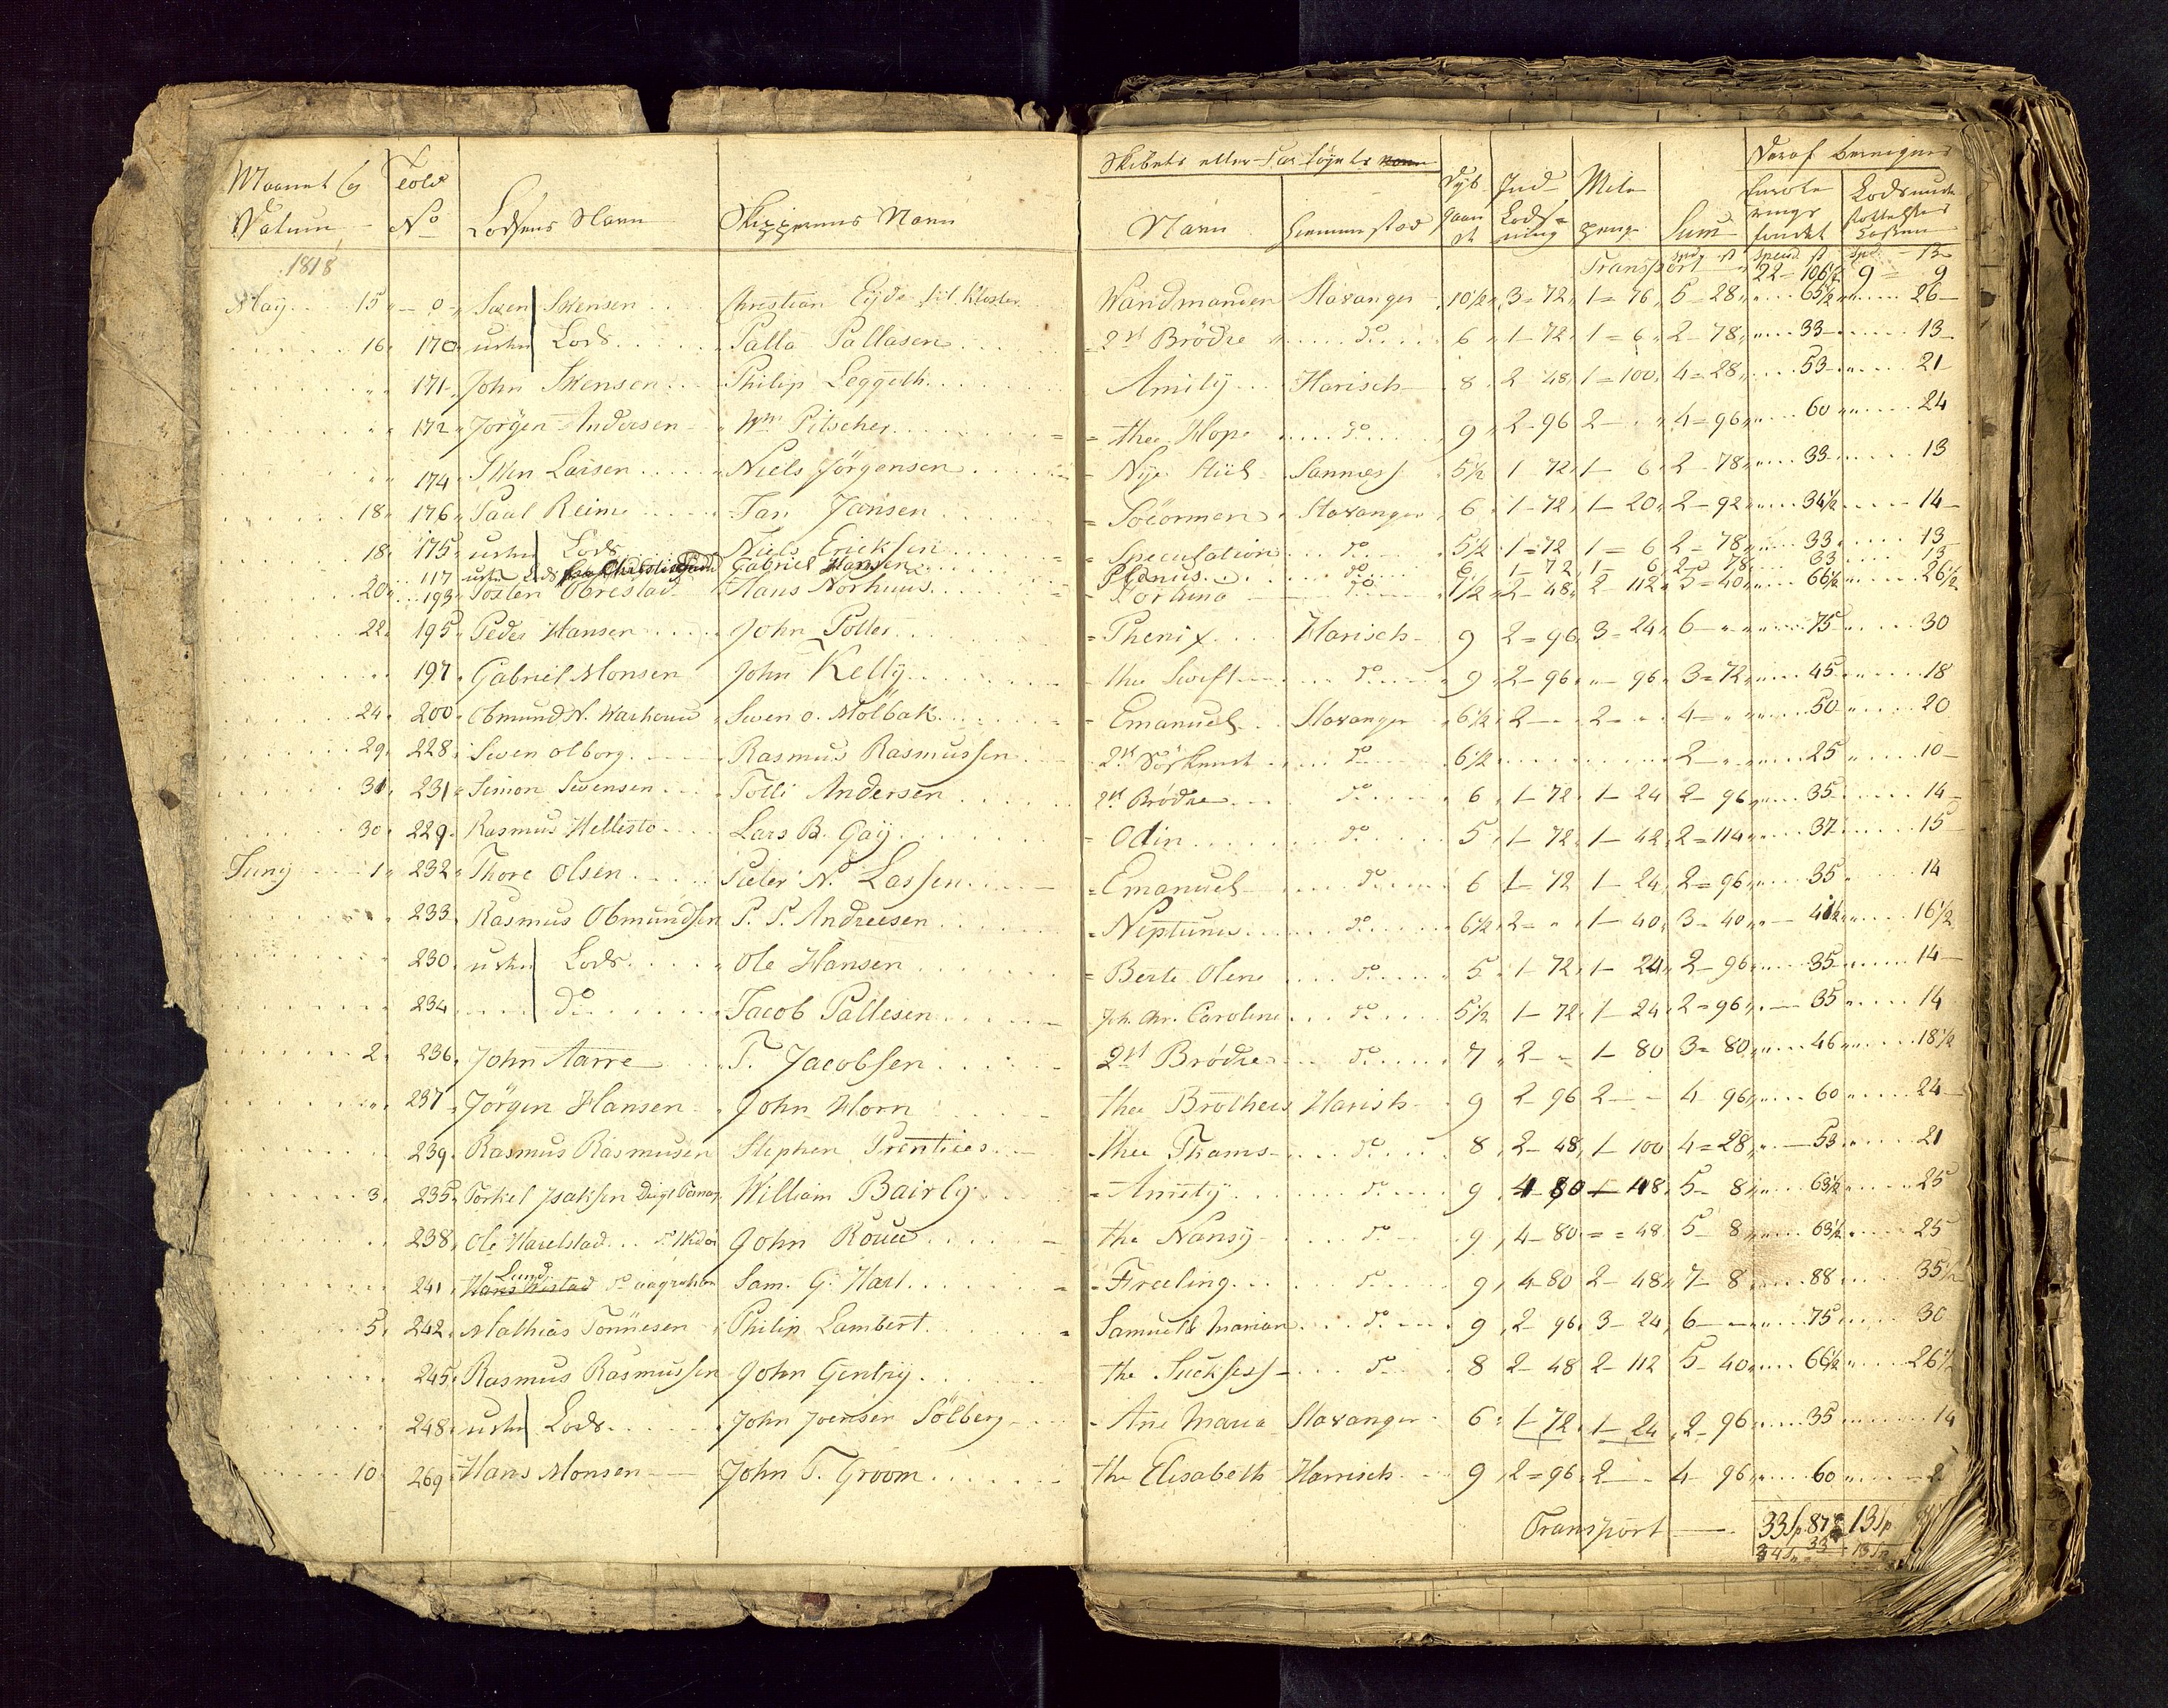 Maanet og Datum Told No Lodsens Navn Skipperens Navn Skibets eller Far töyets Navn Hiemmestæd Dyb gaaende Ind Lodsning Mile penge Sum Deraf beregnes
1818 Transport 22 - 106½ 9 = 9
May 15 " - o - Swen Swensen Christian Eyde til Kloster Wandmanden Stavanger 10½ 3 = 72 1 = 76 5 - 28 65½ 26
16 170 uden Lods Palla Pallasen 2de Brödre do 6 1 - 72 1 = 6 2 - 78 33 13
" 171 John Swensen Philip Leggeth Amity Harisch 8 2 48 1 = 100 4 = 28 53 21
" 172 Jörgen Andersen Wm Pitscher thee Hope do 9 2 - 96 2 - 4 = 96 60 24
" 174 Swen Larsen Niels Jörgensen Nye Hüel Sannæss 5½ 1 72 1 - 6 2 - 78 33 13
18 176 Paul Reime Jan Jansen Söeormen Stavanger 6 1 - 72 1 - 20 2 - 92 34½ 14
18 175 uden Lods Niels Ericksen Speculation do 5½ 1 = 72 1 = 6 2 = 78 33 13
117 uden Lods Gabriel Hansen do 6 1 - 72 1 = 6 2 = 78 33 13
20 193 Tosten Obrestad Hans Norhuus Fortuna do 7½ 2 - 48 2 - 112 5 = 40 66½ 26½
22 195 Peder Hansen John Potter Phenix Harisch 9 2 = 96 3 = 24 6 - 75 30
197 Gabriel Monsen John Kelly thee Swift do 9 2 - 96 - 96 3 = 72 45 18
24 200 Obmund N. Warhoug Swen o. Mölbak Emanuel Stavanger 6½ 2 - 2 - 4 - 50 20
29 228 Swen olborg Rasmus Rasmussen 2de do 6½ 2 - 25 10
31 231 Simon Swensen Tolli Andersen 2de Brödre do 6 1 - 72 1 - 24 2 - 96 35 14
30 229 Rasmus Hellestö Lars B. Gay Odin do 5 1 - 72 1 - 42 2 = 114 37 15
Juny 1 232 Thore Olsen Peter N. Lassen Emanuel do 6 1 - 72 1 - 24 2 = 96 35 14
" 233 Rasmus Obmundsen P. P. Andreesen Neptunus do 6½ 2 = 1 - 40 3 - 40 41½ 16½
" 230 uden Lods Ole Hansen Berte Olene do 5 1 - 72 1 - 24 2 - 96 35 14
234 do Jacob Pallesen Joh. Chr. Caroline do 5½ 1 - 72 1 - 24 2 = 96 35 14
2 236 John Aarre T. Jacobsen 2de Brödre do 7 2 - 1 - 80 3 = 80 46 18½
" 237 Jörgen Hansen John Horn thee Brothers Harisch 9 2 96 2 - 4 96 60 24
239 Rasmus Rasmusen Stephen Prentices thee Thams do 8 2 - 48 1 - 100 4 = 28 53 21
3 235 Torkel Jsaksen William Bairly Amety do 9 4 80 - 48 5 - 8 63½ 25
238 Ole Harelstad John Rouce the Nansy do 9 4 - 80 = 48 5 8 63½ 25
241 Lund Sam. G. Hart Freeling do 9 4 - 80 2 - 48 7 - 8 88 35½
5 242 Mathias Tönnesen Philip Lambert Samuel & Marian do 9 2 - 96 3 - 24 6 - 75 30
245 Rasmus Rasmussen John Gentry the Sucksess do 8 2 - 48 2 - 112 5 - 40 66½ 26½
248 uden Lods John Joensen Sölberg Ane Maria Stavanger 6 1 - 72 1 - 24 2 - 96 35 14
10 269 Hans Monsen John T. Groom the Elisabeth Harrisch 9 2 = 96 2 - 4 - 96 60
Transport 33 Sp 87 13 Sp